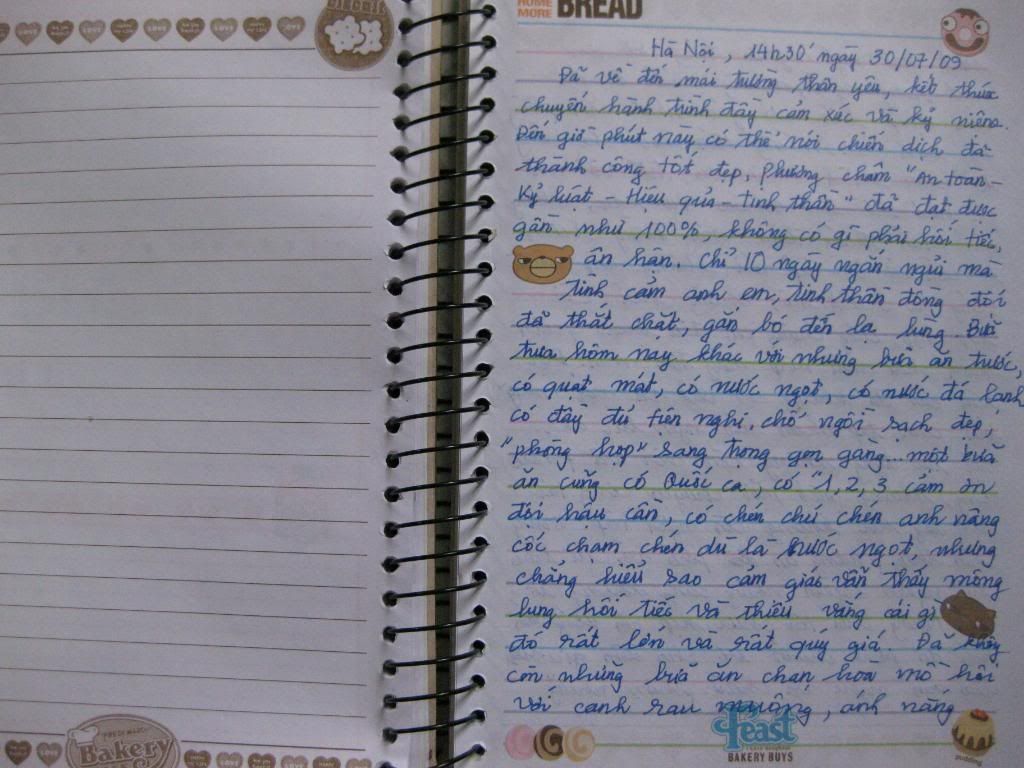 BISCUIT
LOVE
LOVE
LOVE
FRESH MADE
Bakery
LOVE
LOVE
HOME MORE BREAD
Hà Nội, 14h30' ngày 30/07/09
Đã về đến mái trường thân yêu, kết thúc
chuyến hành trình đầy cảm xúc và kỷ niệm.
Đến giờ phút này có thể nói chiến dịch đã
thành công tốt đẹp, phương châm "An toàn -
Kỷ luật - Hiệu quả - Tinh thần" đã đạt được
gần như 100%, không có gì phải hối tiếc,
ân hận. Chỉ 10 ngày ngắn ngủi mà
tình cảm anh em, tinh thần đồng đội
đã thắt chặt, gắn bó đến lạ lùng. Bữa
trưa hôm nay khác với những bữa ăn trước,
có quạt mát, có nước ngọt, có nước đá lạnh
có đầy đủ tiện nghi, chỗ ngồi sạch đẹp,
"phòng họp" sang trọng gọn gàng... một bữa
ăn cũng có Quốc ca, có "1, 2, 3 cảm ơn
đội hậu cần, có chén chú chén anh nâng
cốc chạm chén dù là nước ngọt, nhưng
chẳng hiểu sao cảm giác vẫn thấy mông
lung hối tiếc và thiếu vắng cái gì
đó rất lớn và rất quý giá. Đã không
còn những bữa ăn chan hoà mồ hôi
với canh rau muống, ánh nắng
Feast
BAKERY BUYS
pudding